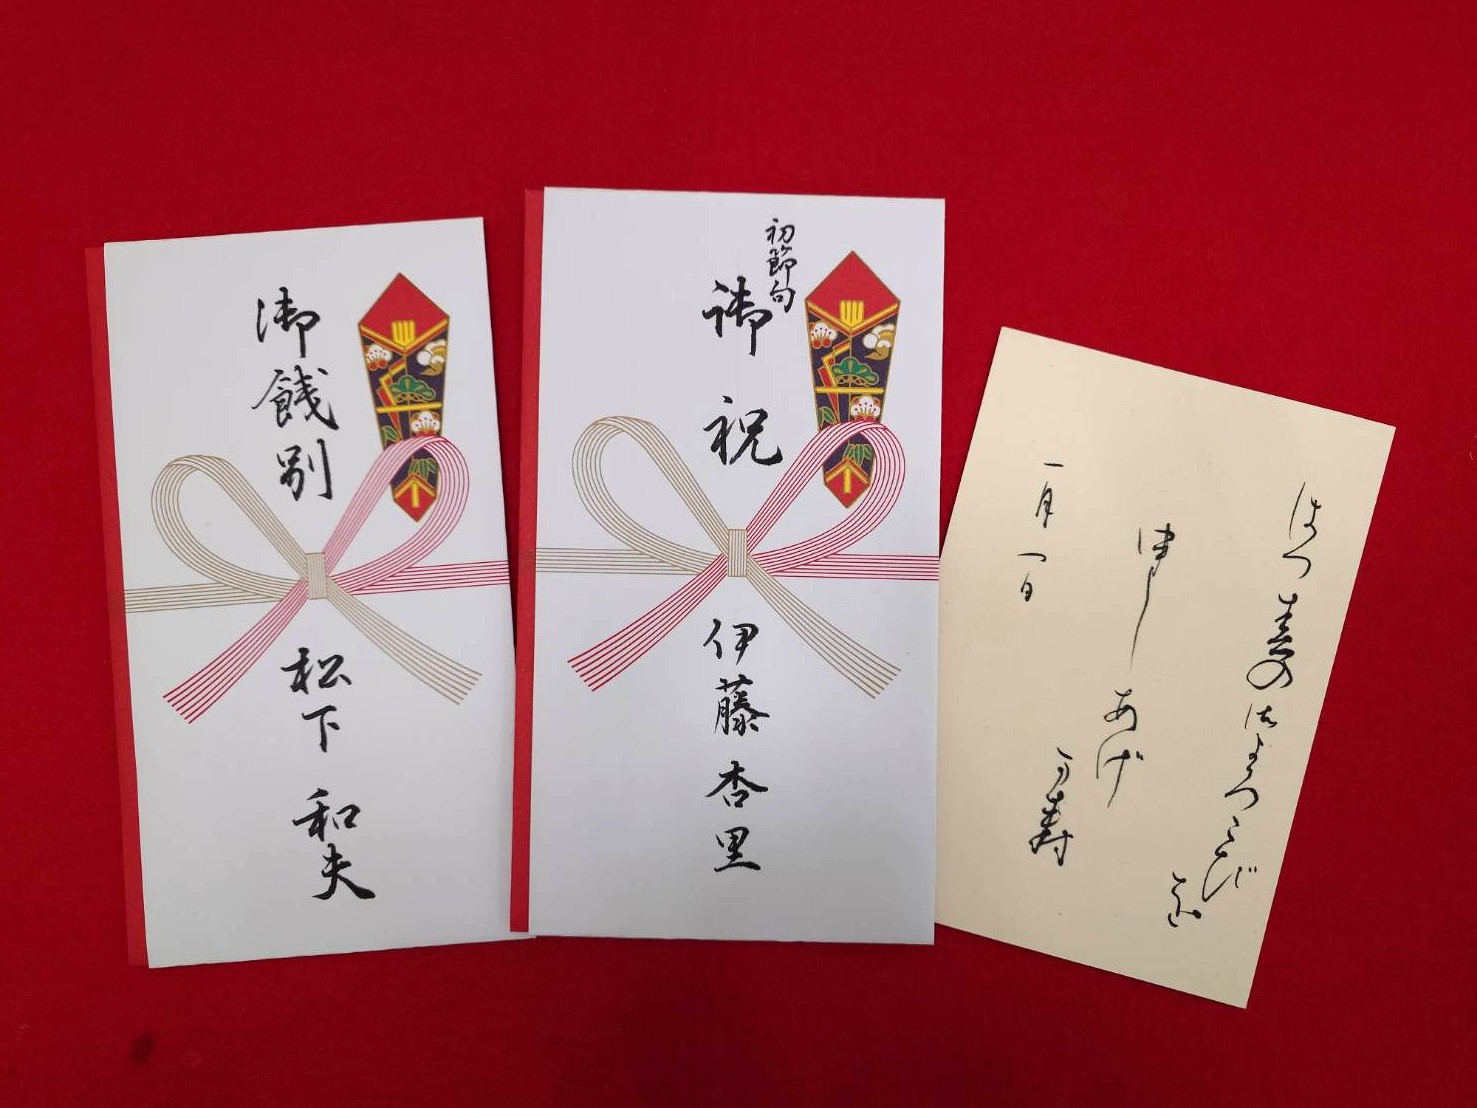 御餞別
松下和夫
初節句
御祝
伊藤杏里
はつ春の御よろこび
を
申しあげ
万寿
一月一日